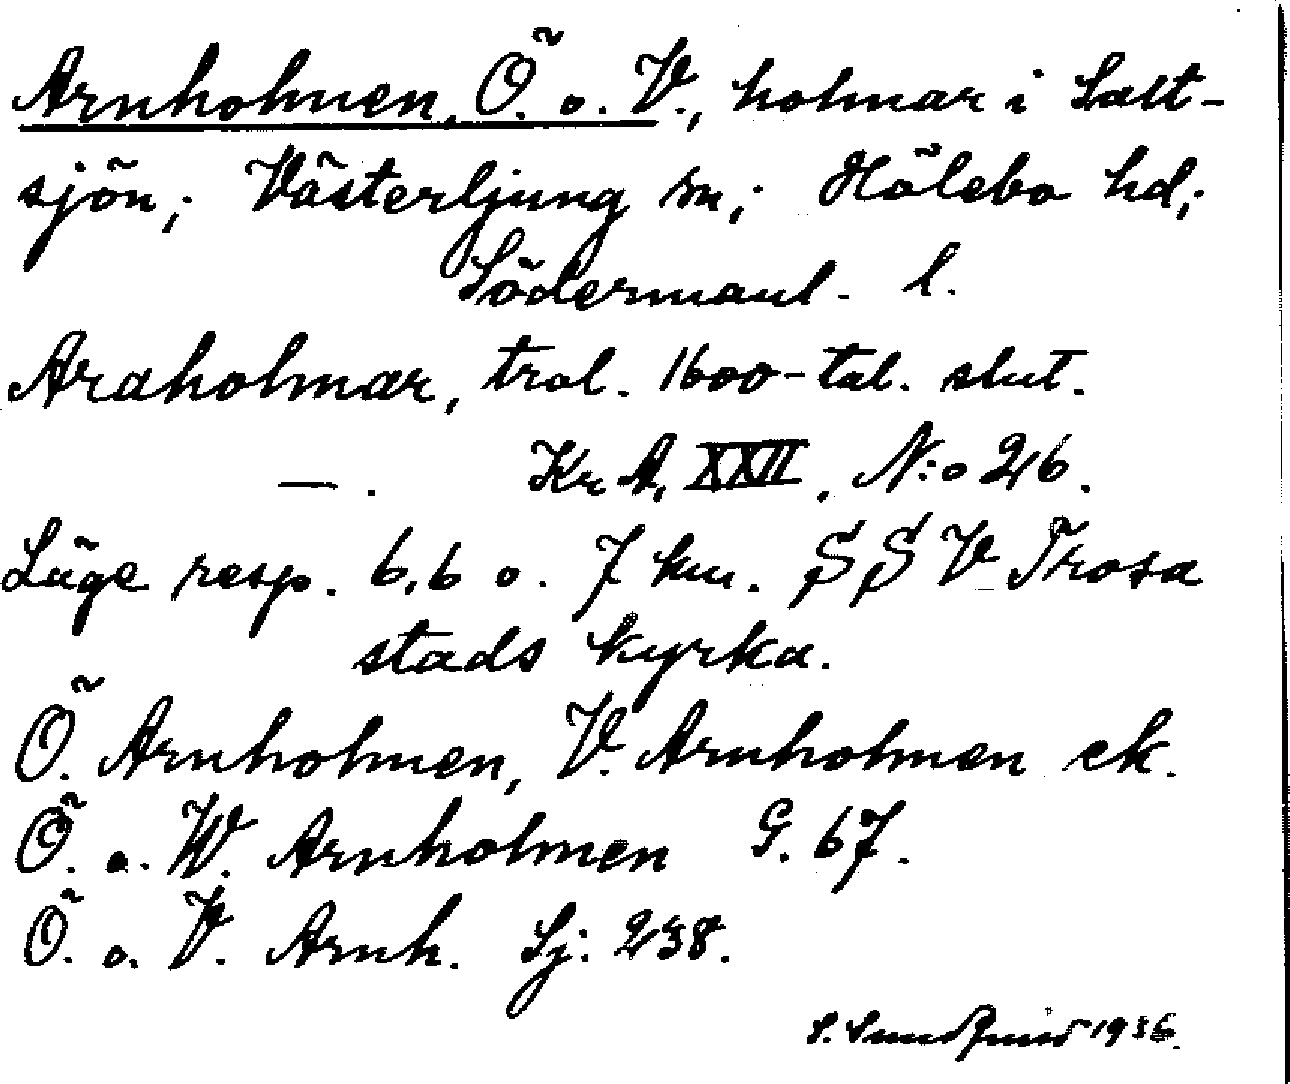 Arnholmen, Ö. o. V., holmar i Salt-
sjön; Västerljung sn; Hölebo hd;
Södermanl. l.
Araholmar, trol. 1600-tal. slut.
— . Kr A, XXII, N:o 26.
Läge resp. 6,6 o. 7 km. SSV Trosa
stads kyrka.
Ö. Arnholmen, V. Arnholmen ek.
Ö. o. W. Arnholmen G. 67.
Ö. o. V. Arnh. Sj. 238.
S. Sundquist 1936.